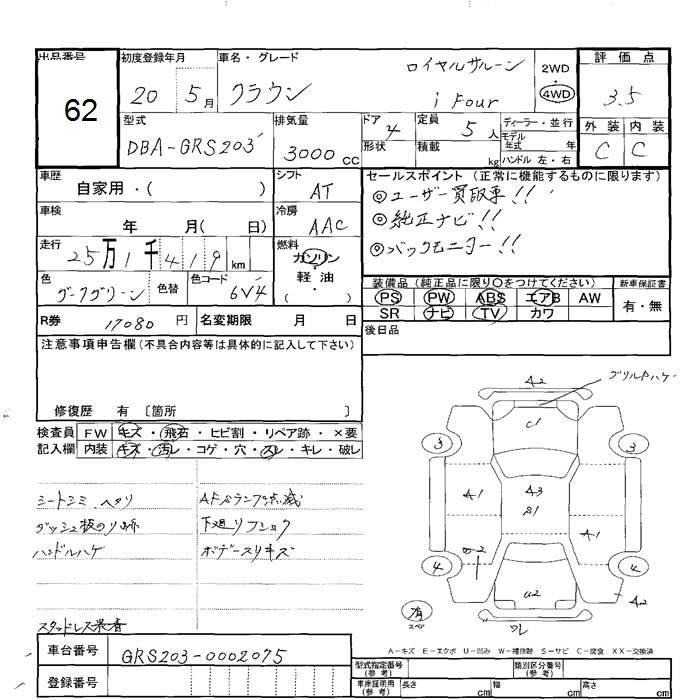 出品番号
62
初度登録年月
20 5月
車名・グレード
クラウン
ロイヤルサルーン
i Four
2WD
・
4WD
評価点
3.5
外装 内装
C C
型式
DBA-GRS203
排気量
3000cc
ドア 4
形状
定員 5人
積載 kg
ディーラー・並行
モデル年式 年
ハンドル 左・右
車歴
自家用・( )
シフト
AT
車検
年 月( 日)
冷房
AAC
走行
25万1千419km
燃料
ガソリン
軽・油
( )
色
ダークグリーン
色替
色コード
6V4
セールスポイント (正常に機能するものに限ります)
◎ユーザー買取車!!
◎純正ナビ!!
◎バックモニター!!
装備品(純正品に限り○をつけてください)
PS PW ABS エアB AW
SR ナビ TV カワ
新車保証書
有・無
後日品
R券 17080円
名変期限 月 日
注意事項申告欄(不具合内容等は具体的に記入して下さい)
修復歴 有 〔箇所 〕
検査員 FW キズ・飛石・ヒビ割・リペア跡・×要
記入欄 内装 キズ・汚レ・コゲ・穴・スレ・キレ・破レ
シートシミ、ヘタリ
ダッシュ板のり跡
ハンドルハゲ
AFSランプ点滅
下廻りフショク
ボデースリキズ
スタッドレス装着
グリルPハゲ
A2
C1
3 3
A1
A3
S1
A1
4 4
U2
A2
有
スペア
A-キズ E-エクボ U-凹み W-補修跡 S-サビ C-腐食 XX-交換済
車台番号
GRS203-0002075
登録番号
型式指定番号
(参考)
類別区分番号
(参考)
車庫証明用
(参考)
長さ cm
幅 cm
高さ cm